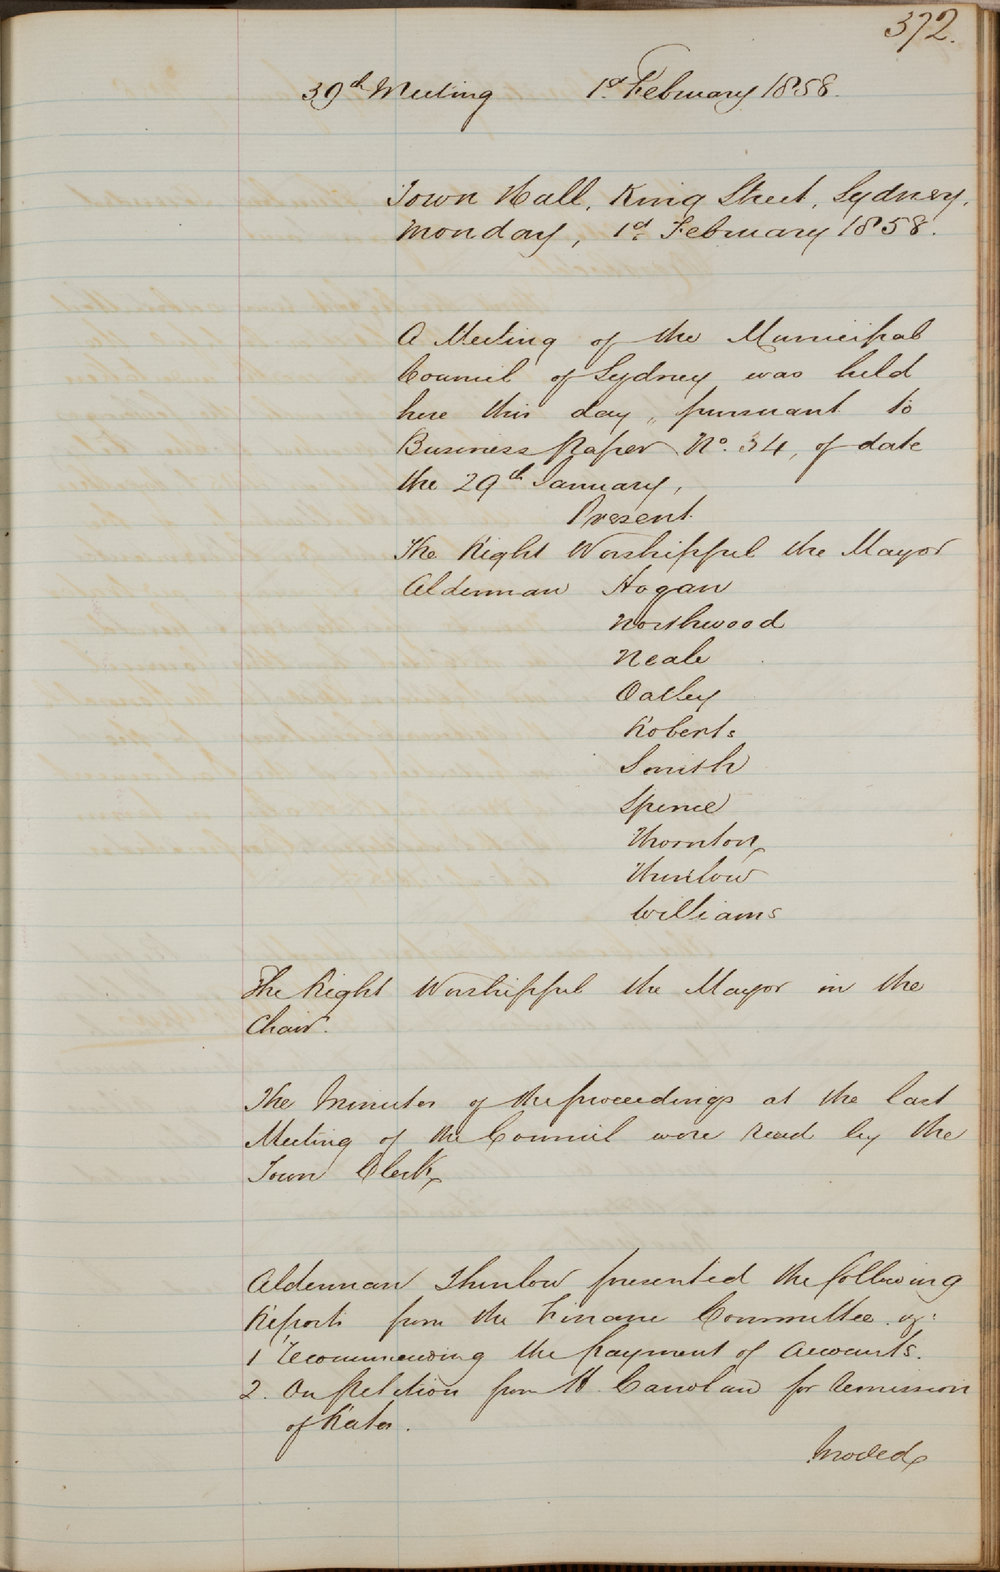 372.
39th Meeting 1st February 1858.
Town Hall, King Street, Sydney,
Monday, 1st February 1858.
A Meeting of the Municipal
Council of Sydney was held
here this day, pursuant to
Business Paper No. 34, of date
the 29th January,
Present
The Right Worshipful the Mayor
Alderman Hogan
Northwood
Neale
Oatley
Roberts
Smith
Spence
Thornton
Thurlow
Williams
The Right Worshipful the Mayor in the
Chair.
The Minutes of the proceedings at the last
Meeting of the Council were read by the
Town Clerk,
Alderman Thurlow presented the following
Reports from the Finance Committee vz:
1 Recommending the payment of Accounts.
2. On Petition from for remission
of Rates.
Moved